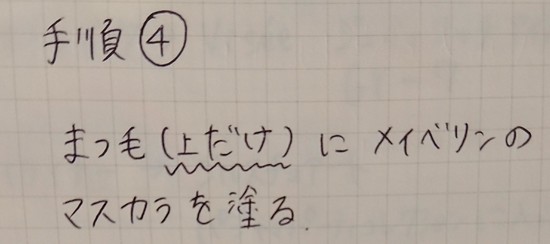 手順④
まつ毛(上だけ)にメイベリンの
マスカラを塗る.